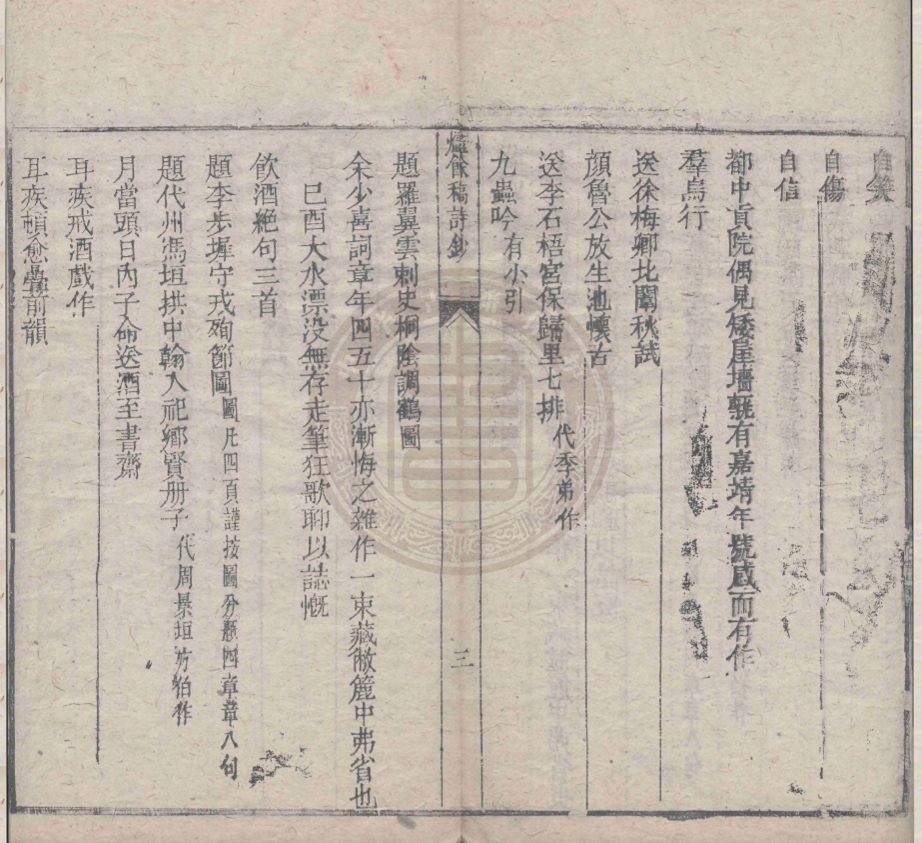 自笑
自傷
自信
都中貢院偶見矮屋墻甎有嘉靖年號感而有作
羣烏行
送徐梅卿北闈秋試
顏魯公放生池懷古
送李石梧宮保歸里七排代季弟作
九蟲吟有小引
燼餘稿詩鈔
三
題羅翼雲刺史桐陰調鶴圖
余少喜詞章年四五十亦漸悔之雜作一束藏敝簏中弗省也
已酉大水漂没無存走筆狂歌聊以誌慨
飲酒絕句三首
題李步墀守戎殉節圖圖凡四頁謹按圖分題四章章八句
題代州馮垣拱中翰入祀鄉賢册子代周景垣方伯作
月當頭日內子命送酒至書齋
耳疾戒酒戲作
耳疾頓愈疊前韻